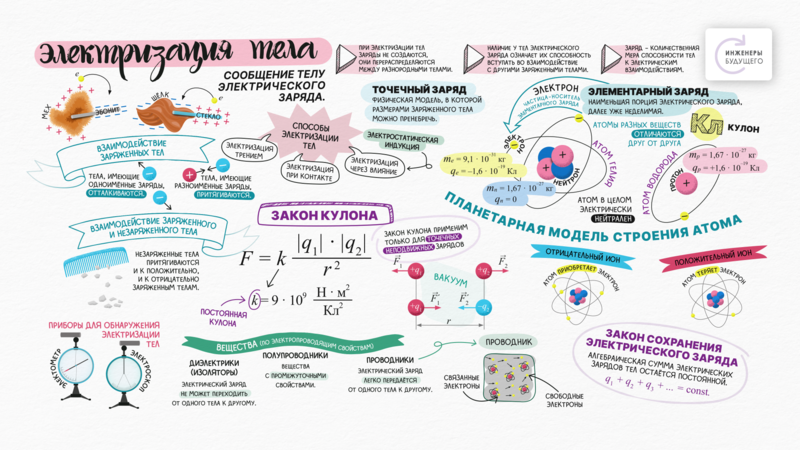 Электризация тела
СООБЩЕНИЕ ТЕЛУ
ЭЛЕКТРИЧЕСКОГО
ЗАРЯДА.
ПРИ ЭЛЕКТРИЗАЦИИ ТЕЛ
ЗАРЯДЫ НЕ СОЗДАЮТСЯ,
ОНИ ПЕРЕРАСПРЕДЕЛЯЮТСЯ
МЕЖДУ РАЗНОРОДНЫМИ ТЕЛАМИ.
НАЛИЧИЕ У ТЕЛ ЭЛЕКТРИЧЕСКОГО
ЗАРЯДА ОЗНАЧАЕТ ИХ СПОСОБНОСТЬ
ВСТУПАТЬ ВО ВЗАИМОДЕЙСТВИЕ
С ДРУГИМИ ЗАРЯЖЕННЫМИ ТЕЛАМИ.
ЗАРЯД – КОЛИЧЕСТВЕННАЯ
МЕРА СПОСОБНОСТИ ТЕЛ
К ЭЛЕКТРИЧЕСКИМ
ВЗАИМОДЕЙСТВИЯМ.
ИНЖЕНЕРЫ
БУДУЩЕГО
МЕХ
ЭБОНИТ
ШЁЛК
СТЕКЛО
ТОЧЕЧНЫЙ ЗАРЯД
ФИЗИЧЕСКАЯ МОДЕЛЬ, В КОТОРОЙ
РАЗМЕРАМИ ЗАРЯЖЕННОГО ТЕЛА
МОЖНО ПРЕНЕБРЕЧЬ.
ЭЛЕКТРОН
ЧАСТИЦА-НОСИТЕЛЬ
ЭЛЕМЕНТАРНОГО ЗАРЯДА
ЭЛЕМЕНТАРНЫЙ ЗАРЯД
НАИМЕНЬШАЯ ПОРЦИЯ ЭЛЕКТРИЧЕСКОГО ЗАРЯДА,
ДАЛЕЕ УЖЕ НЕДЕЛИМАЯ.
АТОМЫ РАЗНЫХ ВЕЩЕСТВ
ОТЛИЧАЮТСЯ
ДРУГ ОТ ДРУГА
Кл КУЛОН
СПОСОБЫ
ЭЛЕКТРИЗАЦИИ
ТЕЛ
ЭЛЕКТРИЗАЦИЯ
ТРЕНИЕМ
ЭЛЕКТРИЗАЦИЯ
ПРИ КОНТАКТЕ
ЭЛЕКТРИЗАЦИЯ
ЧЕРЕЗ ВЛИЯНИЕ
ЭЛЕКТРОСТАТИЧЕСКАЯ
ИНДУКЦИЯ
ЭЛЕКТРОН
mₑ = 9,1 · 10⁻³¹ кг
qₑ = –1,6 · 10⁻¹⁹ Кл
НЕЙТРОН
mₙ = 1,67 · 10⁻²⁷ кг
qₙ = 0
АТОМ ГЕЛИЯ
АТОМ ВОДОРОДА
ПРОТОН
mₚ = 1,67 · 10⁻²⁷ кг
qₚ = +1,6 · 10⁻¹⁹ Кл
АТОМ В ЦЕЛОМ
ЭЛЕКТРИЧЕСКИ
НЕЙТРАЛЕН
ПЛАНЕТАРНАЯ МОДЕЛЬ СТРОЕНИЯ АТОМА
ВЗАИМОДЕЙСТВИЕ
ЗАРЯЖЕННЫХ ТЕЛ
ТЕЛА, ИМЕЮЩИЕ
ОДНОИМЁННЫЕ ЗАРЯДЫ,
ОТТАЛКИВАЮТСЯ.
ТЕЛА, ИМЕЮЩИЕ
РАЗНОИМЁННЫЕ ЗАРЯДЫ,
ПРИТЯГИВАЮТСЯ.
ВЗАИМОДЕЙСТВИЕ ЗАРЯЖЕННОГО
И НЕЗАРЯЖЕННОГО ТЕЛА
НЕЗАРЯЖЕННЫЕ ТЕЛА
ПРИТЯГИВАЮТСЯ
И К ПОЛОЖИТЕЛЬНО,
И К ОТРИЦАТЕЛЬНО
ЗАРЯЖЕННЫМ ТЕЛАМ.
ЗАКОН КУЛОНА
F = k |q₁| · |q₂| / r²
k = 9 · 10⁹ Н · м² / Кл²
ПОСТОЯННАЯ
КУЛОНА
ЗАКОН КУЛОНА ПРИМЕНИМ
ТОЛЬКО ДЛЯ ТОЧЕЧНЫХ
НЕПОДВИЖНЫХ ЗАРЯДОВ
F₁ +q₁ +q₂ F₂
ВАКУУМ
+q₁ F₁ F₂ –q₂
r
ОТРИЦАТЕЛЬНЫЙ ИОН
АТОМ ПРИОБРЕТАЕТ ЭЛЕКТРОН
ПОЛОЖИТЕЛЬНЫЙ ИОН
АТОМ ТЕРЯЕТ ЭЛЕКТРОН
ПРИБОРЫ ДЛЯ ОБНАРУЖЕНИЯ
ЭЛЕКТРИЗАЦИИ
ТЕЛ
ЭЛЕКТРОМЕТР
ЭЛЕКТРОСКОП
ВЕЩЕСТВА (ПО ЭЛЕКТРОПРОВОДЯЩИМ СВОЙСТВАМ)
ДИЭЛЕКТРИКИ
(ИЗОЛЯТОРЫ)
ЭЛЕКТРИЧЕСКИЙ ЗАРЯД
НЕ МОЖЕТ ПЕРЕХОДИТЬ
ОТ ОДНОГО ТЕЛА К ДРУГОМУ.
ПОЛУПРОВОДНИКИ
ВЕЩЕСТВА
С ПРОМЕЖУТОЧНЫМИ
СВОЙСТВАМИ.
ПРОВОДНИКИ
ЭЛЕКТРИЧЕСКИЙ ЗАРЯД
ЛЕГКО ПЕРЕДАЁТСЯ
ОТ ОДНОГО ТЕЛА К ДРУГОМУ.
ПРОВОДНИК
СВЯЗАННЫЕ
ЭЛЕКТРОНЫ
СВОБОДНЫЕ
ЭЛЕКТРОНЫ
ЗАКОН СОХРАНЕНИЯ
ЭЛЕКТРИЧЕСКОГО ЗАРЯДА
АЛГЕБРАИЧЕСКАЯ СУММА ЭЛЕКТРИЧЕСКИХ
ЗАРЯДОВ ТЕЛ ОСТАЁТСЯ ПОСТОЯННОЙ.
q₁ + q₂ + q₃ + ... = const.